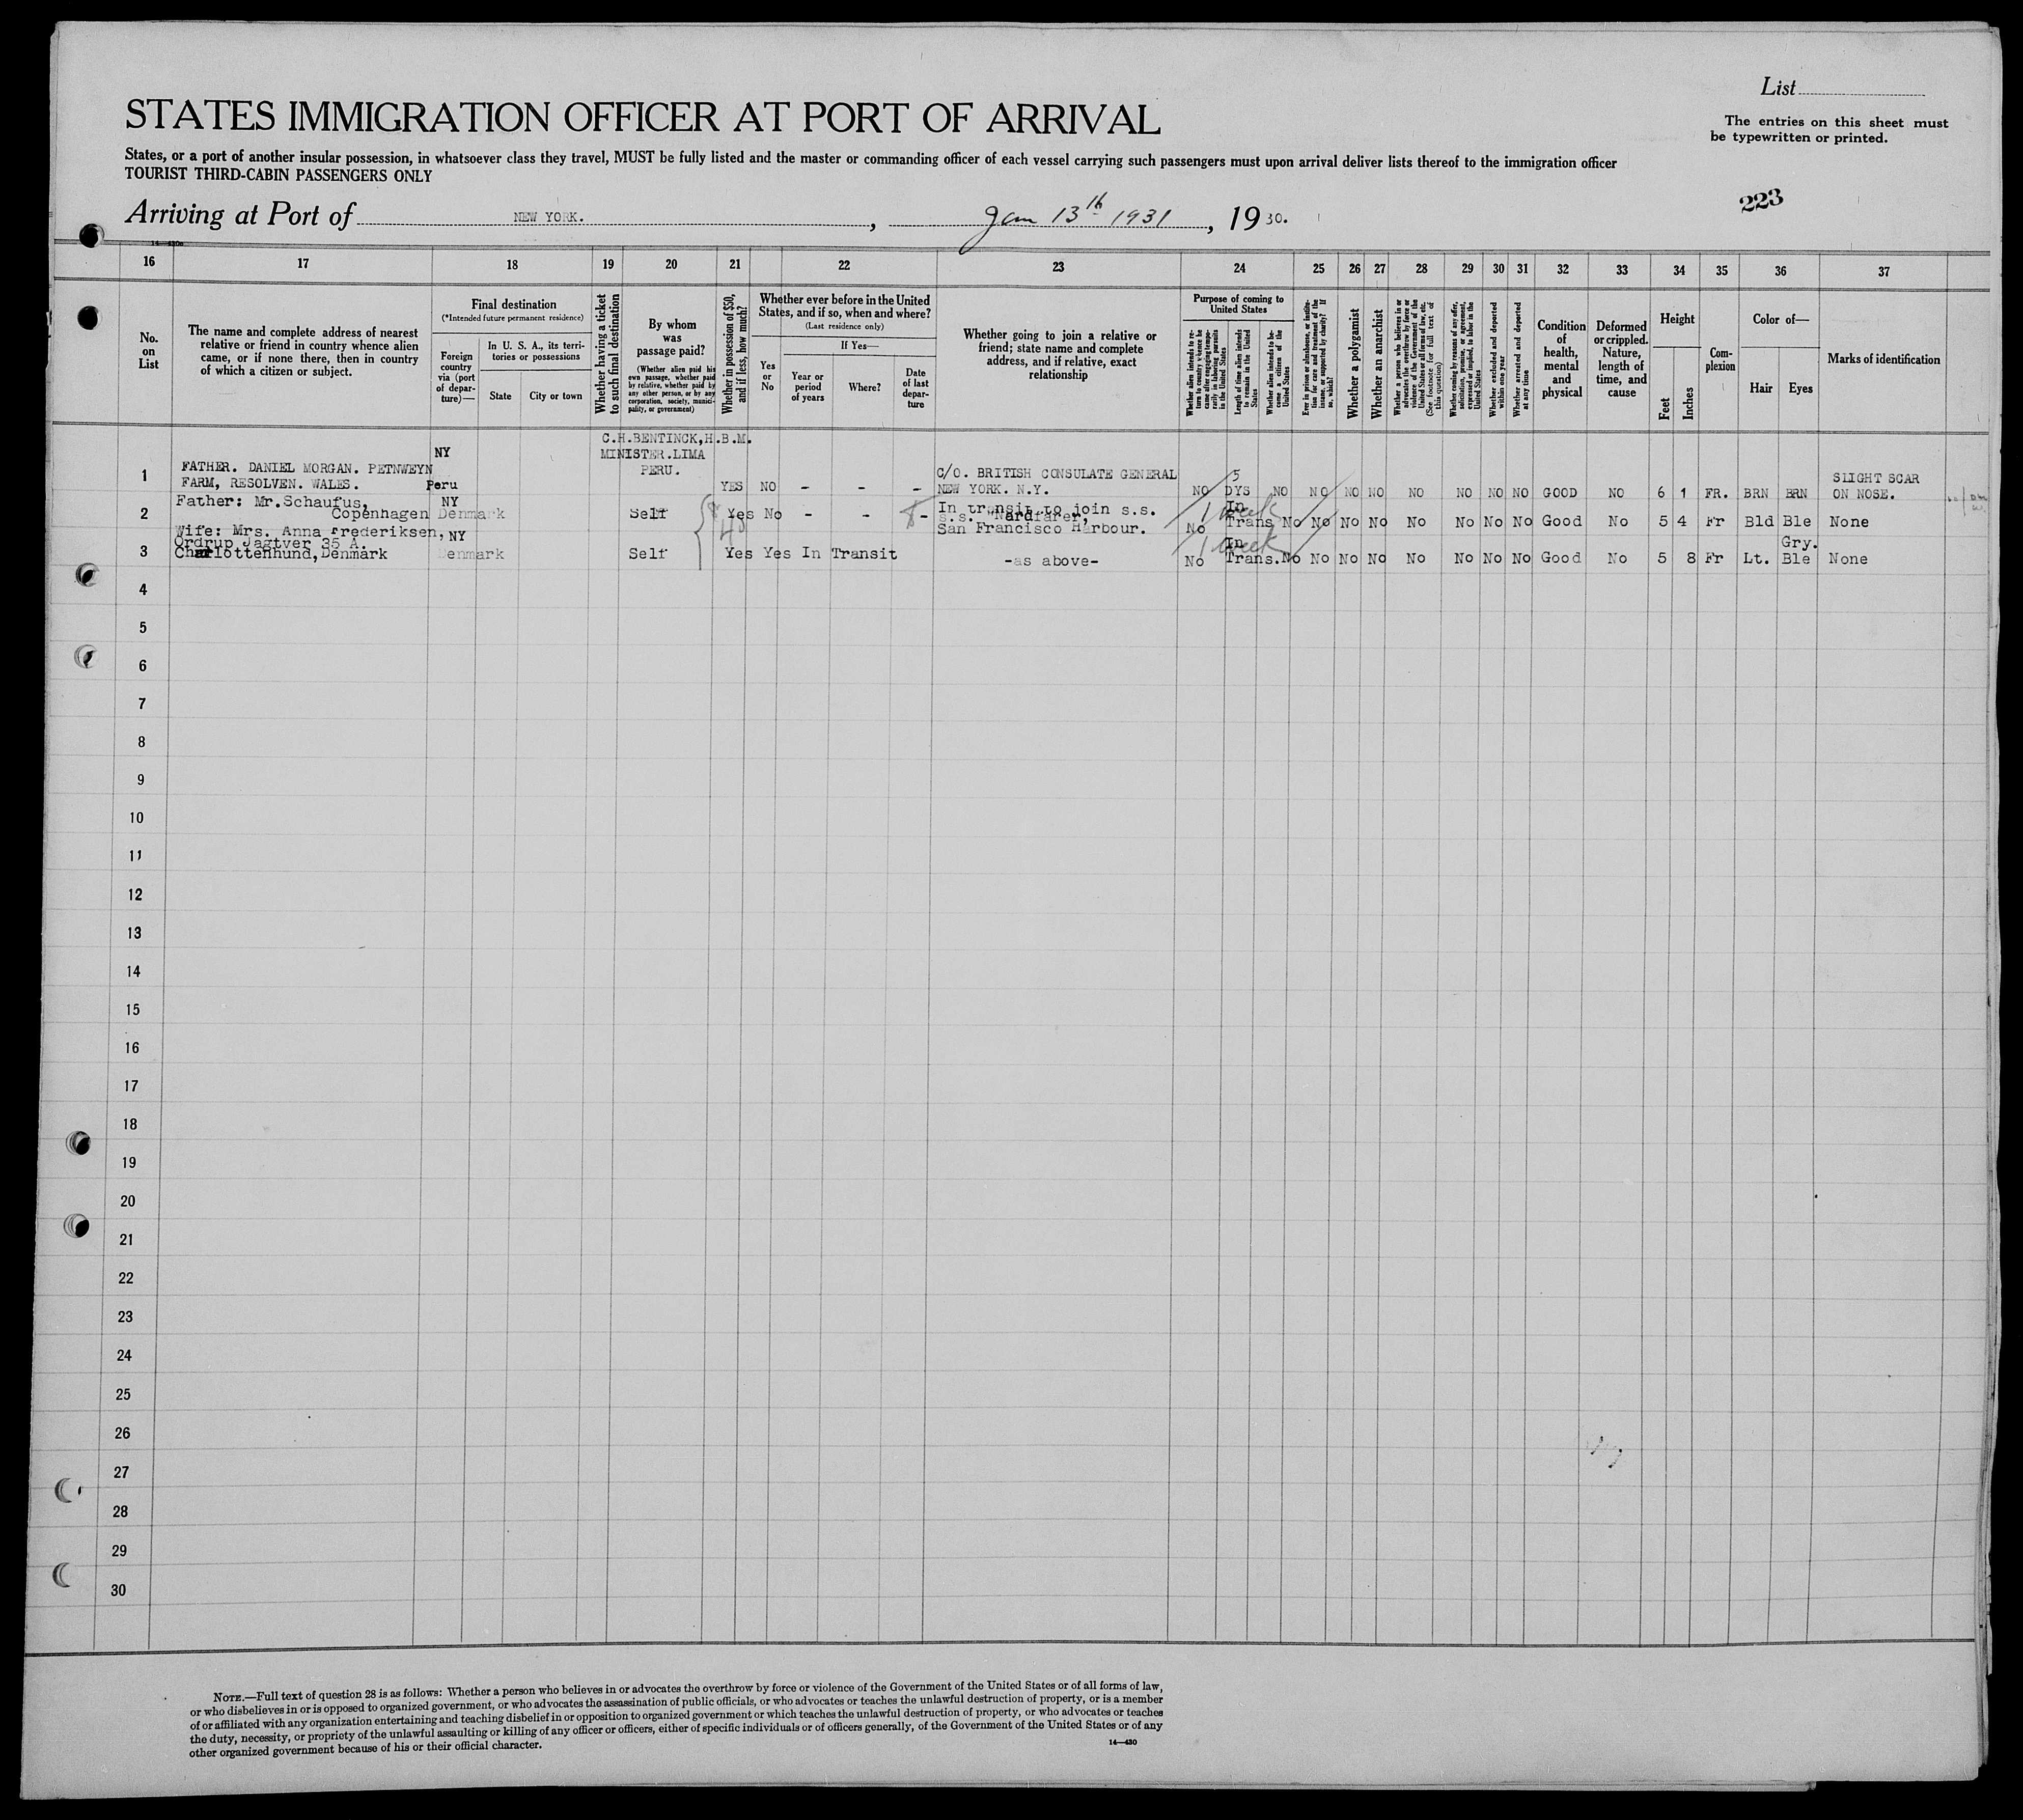 List
STATES IMMIGRATION OFFICER AT PORT OF ARRIVAL
The entries on this sheet must
be typewritten or printed.
States, or a port of another insular possession, in whatsoever class they travel, MUST be fully listed and the master or commanding officer of each vessel carrying such passengers must upon arrival deliver lists thereof to the immigration officer
TOURIST THIRD-CABIN PASSENGERS ONLY
223
Arriving at Port of NEW YORK. , Jan 13th 1931 , 19 30.
14—430a
16 17 18 19 20 21 22 23 24 25 26 27 28 29 30 31 32 33 34 35 36 37
No. on List
The name and complete address of nearest
relative or friend in country whence alien
came, or if none there, then in country
of which a citizen or subject.
Final destination
(*Intended future permanent residence)
Foreign country via (port of departure)—
In U. S. A., its territories or possessions
State
City or town
Whether having a ticket to such final destination
By whom was passage paid?
(Whether alien paid his own passage, whether paid by relative, whether paid by any other person, or by any corporation, society, municipality, or government)
Whether in possession of $50, and if less, how much?
Whether ever before in the United States, and if so, when and where?
(Last residence only)
Yes or No
If Yes—
Year or period of years
Where?
Date of last departure
Whether going to join a relative or
friend; state name and complete
address, and if relative, exact
relationship
Purpose of coming to United States
Whether alien intends to return to country whence he came after engaging temporarily in laboring pursuits in the United States
Length of time alien intends to remain in the United States
Whether alien intends to become a citizen of the United States
Ever in prison or almshouse, or institution for care and treatment of the insane, or supported by charity? If so, which?
Whether a polygamist
Whether an anarchist
Whether a person who believes in or advocates the overthrow by force or violence of the Government of the United States or all forms of law, etc. (See footnote for full text of this question)
Whether coming by reasons of any offer, solicitation, promise, or agreement, expressed or implied, to labor in the United States
Whether excluded and deported within one year
Whether arrested and deported at any time
Condition of health, mental and physical
Deformed or crippled. Nature, length of time, and cause
Height
Feet
Inches
Complexion
Color of—
Hair
Eyes
Marks of identification
1 FATHER. DANIEL MORGAN. PETNWEYN
FARM, RESOLVEN. WALES.
NY
Peru
C.H.BENTINCK,H.B.M.
MINISTER.LIMA
PERU.
YES NO - - -
C/O. BRITISH CONSULATE GENERAL
NEW YORK. N.Y.
NO 5 DYS NO NO NO NO NO NO NO NO GOOD NO 6 1 FR. BRN BRN
SLIGHT SCAR
ON NOSE.
2 Father: Mr.Schaufus,
Copenhagen
NY
Denmark
Self Yes No - - -
In transit to join s.s.
s.s. "Nardfarer,
San Francisco Harbour.
No In Trans 1 week No No No No No No No No Good No 5 4 Fr Bld Ble None
3 Wife: Mrs. Anna Frederiksen,
Ordrup Jagtver 35 A.
Charlottenhund, Denmark
NY
Denmark
Self Yes Yes In Transit
-as above-
No In Trans. 1 week No No No No No No No No Good No 5 8 Fr Lt. Gry. Ble None
4
5
6
7
8
9
10
11
12
13
14
15
16
17
18
19
20
21
22
23
24
25
26
27
28
29
30
NOTE.—Full text of question 28 is as follows: Whether a person who believes in or advocates the overthrow by force or violence of the Government of the United States or of all forms of law,
or who disbelieves in or is opposed to organized government, or who advocates the assassination of public officials, or who advocates or teaches the unlawful destruction of property, or is a member
of or affiliated with any organization entertaining and teaching disbelief in or opposition to organized government or which teaches the unlawful destruction of property, or who advocates or teaches
the duty, necessity, or propriety of the unlawful assaulting or killing of any officer or officers, either of specific individuals or of officers generally, of the Government of the United States or of any
other organized government because of his or their official character.
14—430